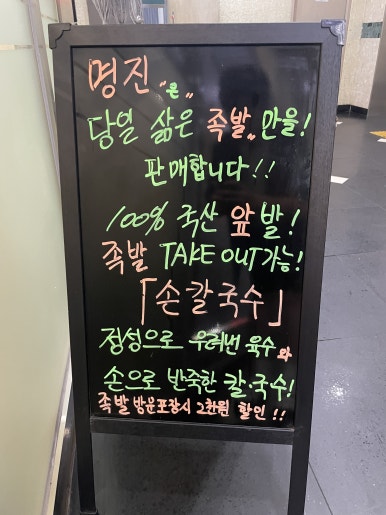 명진 〃은〃
당일 삶은 족발〃만을!
판매합니다!!
100% 국산 앞발!
족발 TAKE OUT가능!
「손칼국수」
정성으로 우려낸 육수와
손으로 반죽한 칼·국수!
족발 방문포장시 2천원 할인!!